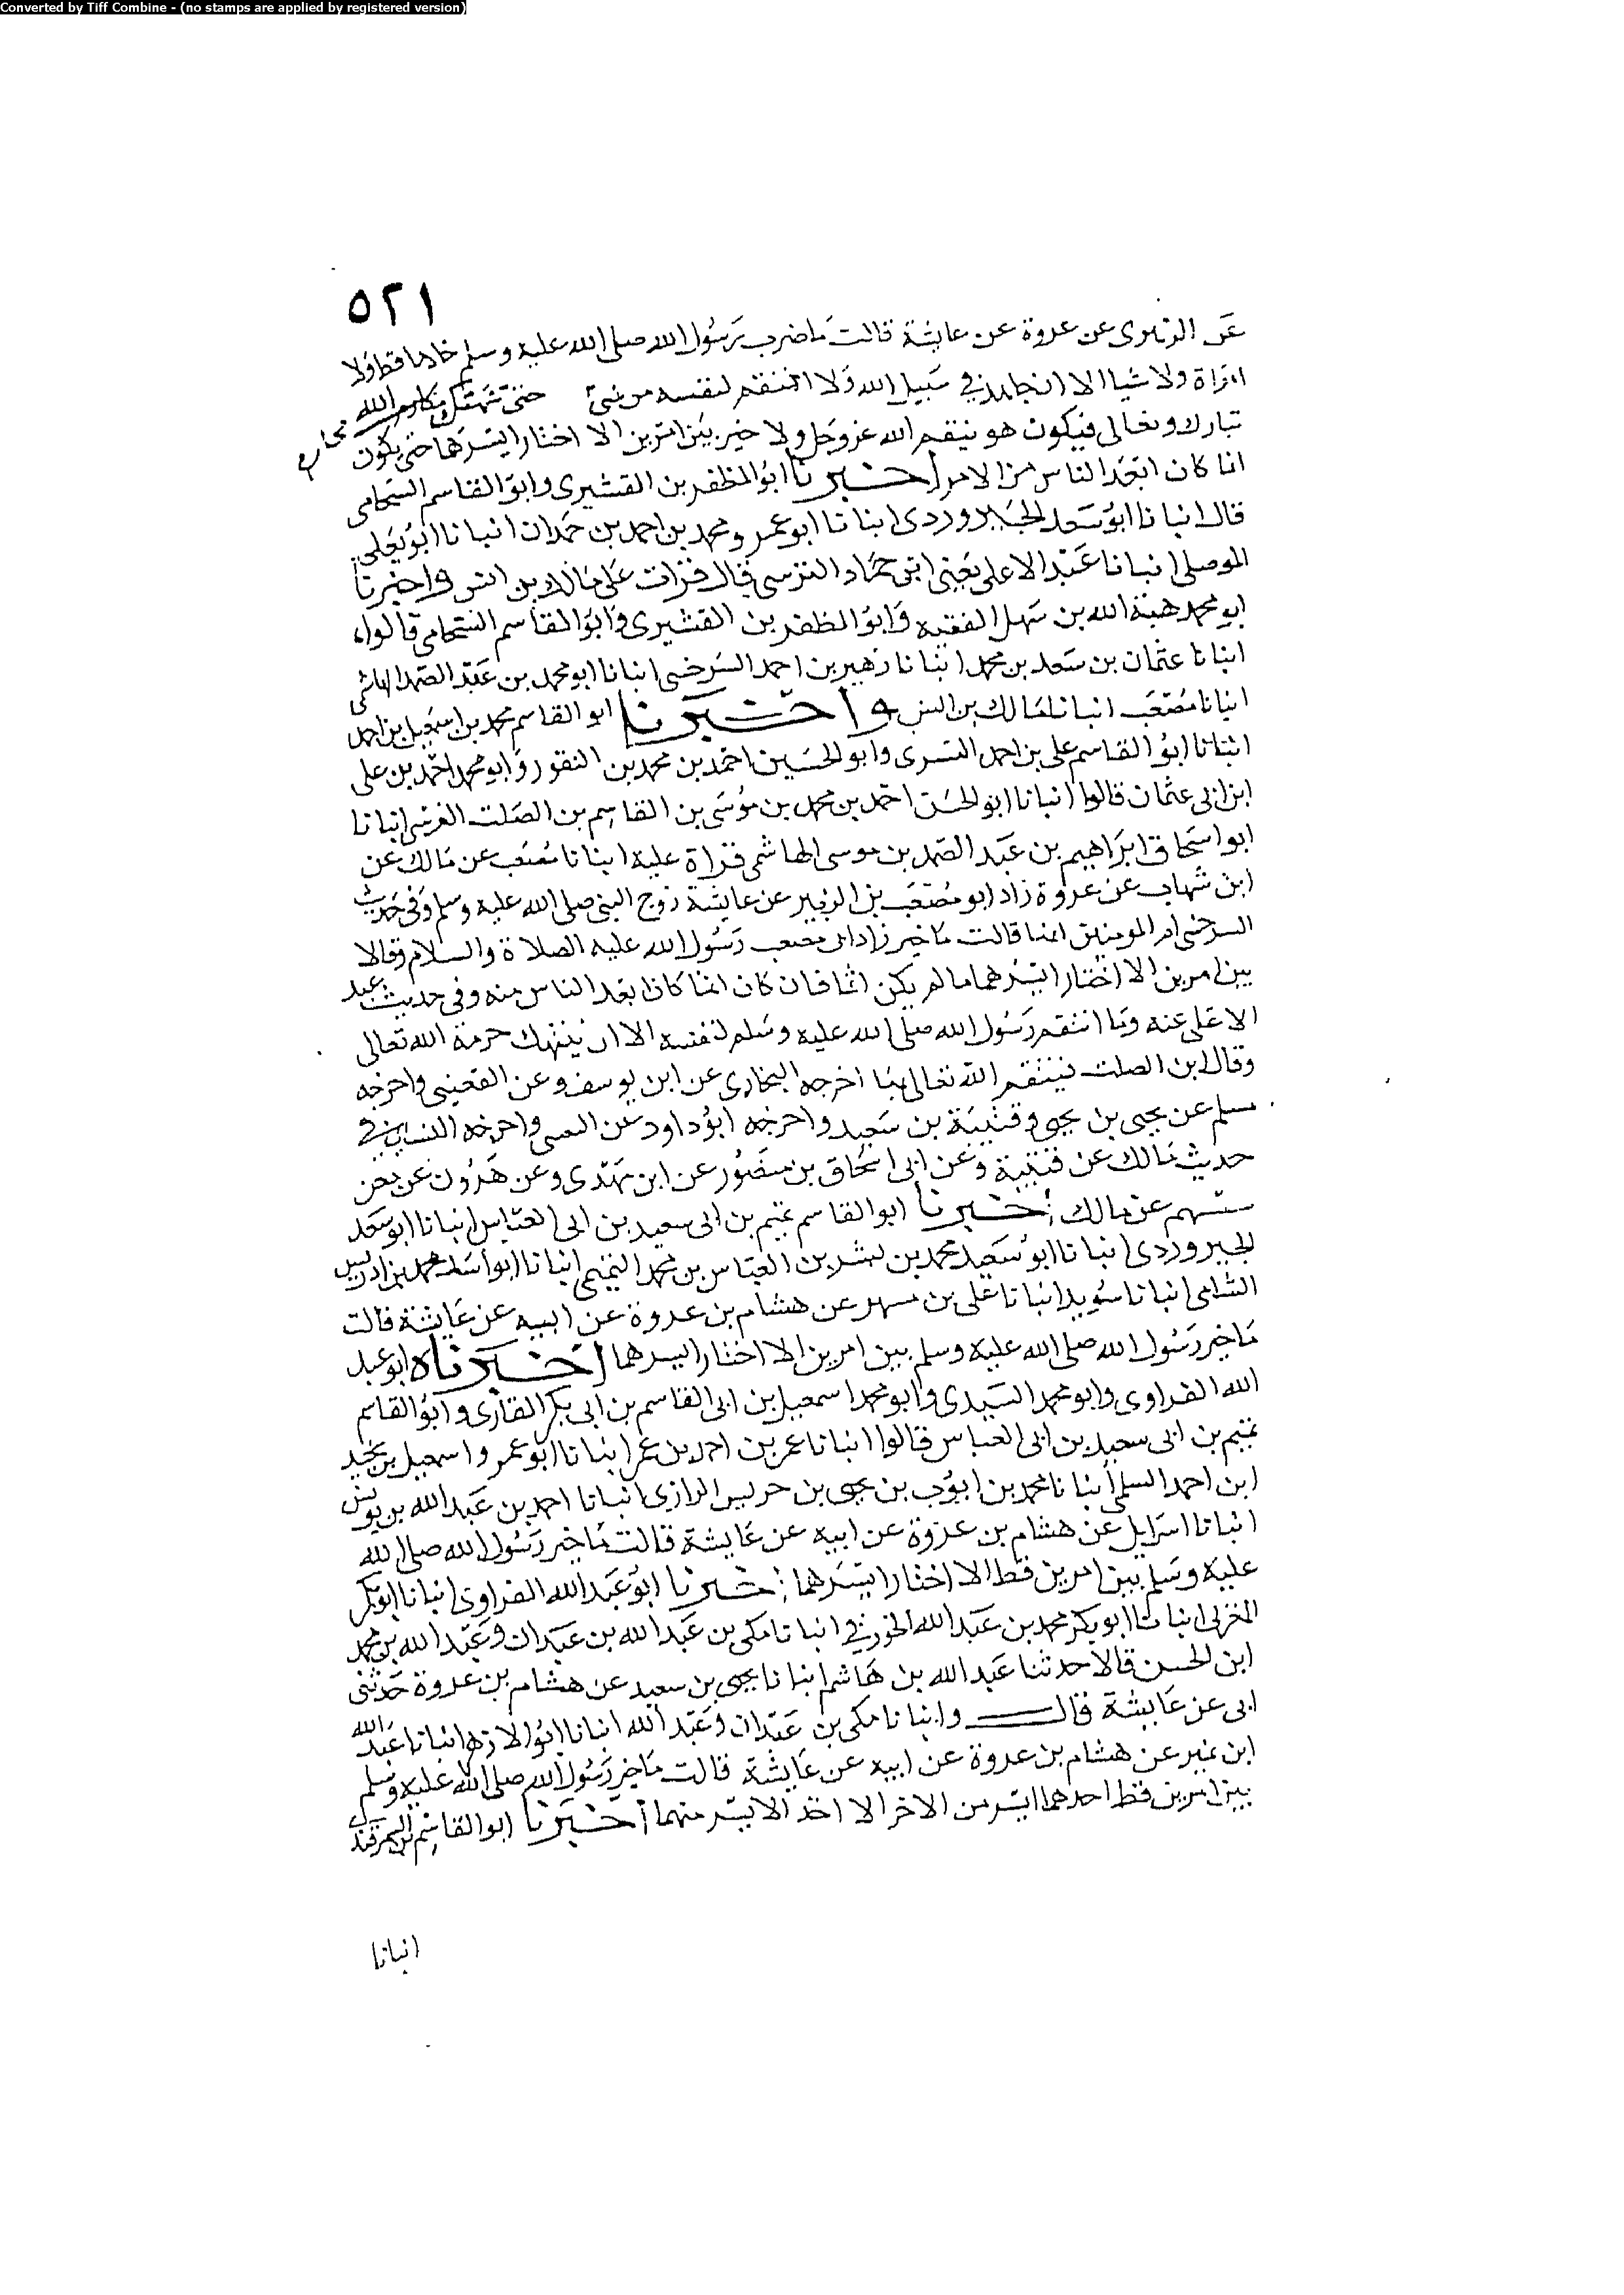 Converted by Tiff Combine - (no stamps are applied by registered version)
٥٢١
عن الزهرى عن عروة عن عايشة قالت ما ضرب رسول الله صلى الله عليه وسلم خادما قط ولا
امراة ولا شيا الا ان يجاهد في سبيل الله ولا انتقم لنفسه من شئ حتى تنتهك مكارم الله
محارم
تبارك وتعالى فيكون هو ينتقم الله عز وجل ولا خير بين امرين الا اختار ايسرهما حتى يكون
اثما كان ابعد الناس من الامر اخبرنا ابو المظفر بن القشيرى وابو القاسم الشحامى
قالا انبانا ابو سعد الجنزرودى انبانا ابو عمرو محمد بن احمد بن حمدان انبانا ابو يعلى
الموصلى انبانا عبد الاعلى يعنى ابن حماد النرسى قال قرات على مالك بن انس واخبرنا
ابو محمد هبة الله بن سهل الفقيه وابو المظفر بن القشيرى وابو القاسم الشحامى قالوا
انبانا عثمان بن سعد بن محمد انبانا زهير بن احمد السرخسى انبانا ابو محمد بن عبد الصمد الهاشمى
انبانا مصعب انبانا مالك بن انس واخبرنا ابو القاسم محمد بن اسمعيل بن احمد
انبانا ابو القاسم على بن احمد البسرى وابو الحسين احمد بن محمد بن النقور وابو محمد احمد بن على
ابن ابى عثمان قالوا انبانا ابو الحسن احمد بن محمد بن موسى بن القاسم بن الصلت القرشى انبانا
ابو اسحاق ابراهيم بن عبد الصمد بن موسى الهاشمى قراة عليه انبانا مصعب عن مالك عن
ابن شهاب عن عروة زاد ابو مصعب بن الزبير عن عايشة زوج النبى صلى الله عليه وسلم وفى حديث
السرخسى ام المومنين انها قالت ما خير زاد ابو مصعب رسول الله عليه الصلاة والسلام وقالا
بين امرين الا اختار ايسرهما ما لم يكن اثما فان كان اثما كان ابعد الناس منه وفى حديث عبد
الاعلى عنه وما انتقم رسول الله صلى الله عليه وسلم لنفسه الا ان ينتهك حرمة الله تعالى
وقال ابن الصلت فينتقم الله تعالى بها اخرجه البخارى عن ابن يوسف وعن القعنبى واخرجه
مسلم عن يحيى بن يحيى وقتيبة بن سعيد واخرجه ابو داود عن واخرجه النساى فى
حديث مالك عن قتيبة وعن ابى اسحاق بن منصور عن ابن مهدى وعن هرون عن معن
عن مالك اخبرنا ابو القاسم تميم بن ابى سعيد بن ابى العباس انبانا ابو سعد
الجنزرودى انبانا ابو سعيد محمد بن بشر بن العباس بن محمد التميمى انبانا ابو اسد محمد بن ادريس
الشامى انبانا سويد انبانا على بن مسهر عن هشام بن عروة عن ابيه عن عايشة قالت
ما خير رسول الله صلى الله عليه وسلم بين امرين الا اختار ايسرهما اخبرناه ابو عبد
الله الفراوى وابو محمد السيدى وابو محمد اسمعيل بن ابى القاسم بن ابى بكر القارى وابو القاسم
تميم بن ابى سعيد بن ابى العباس قالوا انبانا عمر بن احمد بن عمر انبانا ابو عمرو اسمعيل بن نجيد
ابن احمد السلمى انبانا محمد بن ايوب بن يحيى بن الرازى انبانا احمد بن عبد الله بن يونس
انبانا اسرايل عن هشام بن عروة عن ابيه عن عايشة قالت ما خير رسول الله صلى الله
عليه وسلم بين امرين قط الا اختار ايسرهما اخبرنا ابو عبد الله الفراوى انبانا ابو بكر
المغربى انبانا ابو بكر محمد بن عبد الله الجوزقى انبانا مكى بن عبد الله بن عبدان وعبد الله بن محمد
ابن الحسن قالا حدثنا عبد الله بن هاشم انبانا يحيى بن سعيد عن هشام بن عروة حدثنى
ابى عن عايشة قال وانبانا مكى بن عبدان وعبد الله انبانا ابو الازهر انبانا عبد الله
ابن نمير عن هشام بن عروة عن ابيه عن عايشة قالت ما خير رسول الله صلى الله عليه وسلم
بين امرين قط احدهما ايسر من الاخر الا اخذ الايسر منهما اخبرنا ابو القاسم بن السمرقندى
انبانا